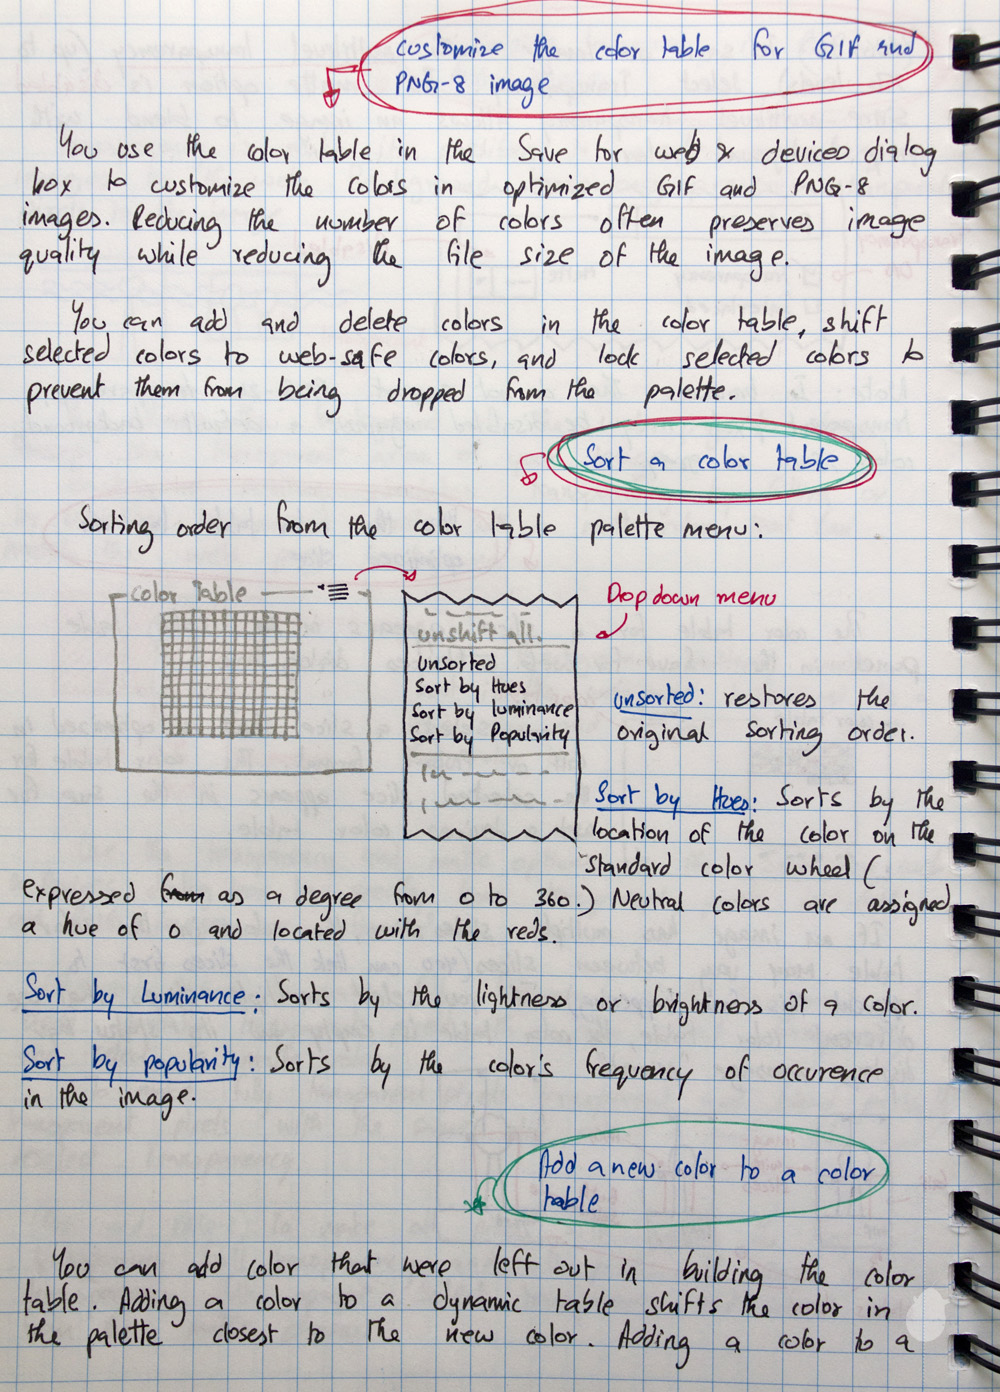 customize the color table for GIF and
PNG-8 image
You use the color table in the Save for web & devices dialog
box to customize the colors in optimized GIF and PNG-8
images. Reducing the number of colors often preserves image
quality while reducing the file size of the image.
You can add and delete colors in the color table, shift
selected colors to web-safe colors, and lock selected colors to
prevent them from being dropped from the palette.
Sort a color table
Sorting order from the color table palette menu:
color table
unshift all.
unsorted
Sort by Hues
Sort by luminance
Sort by Popularity
Drop down menu
unsorted: restores the
original sorting order.
Sort by Hues: Sorts by the
location of the color on the
standard color wheel (
expressed from as a degree from 0 to 360.) Neutral colors are assigned
a hue of 0 and located with the reds.
Sort by Luminance: Sorts by the lightness or brightness of a color.
Sort by popularity: Sorts by the color's frequency of occurence
in the image.
Add a new color to a color
table
You can add color that were left out in building the color
table. Adding a color to a dynamic table shifts the color in
the palette closest to the new color. Adding a color to a